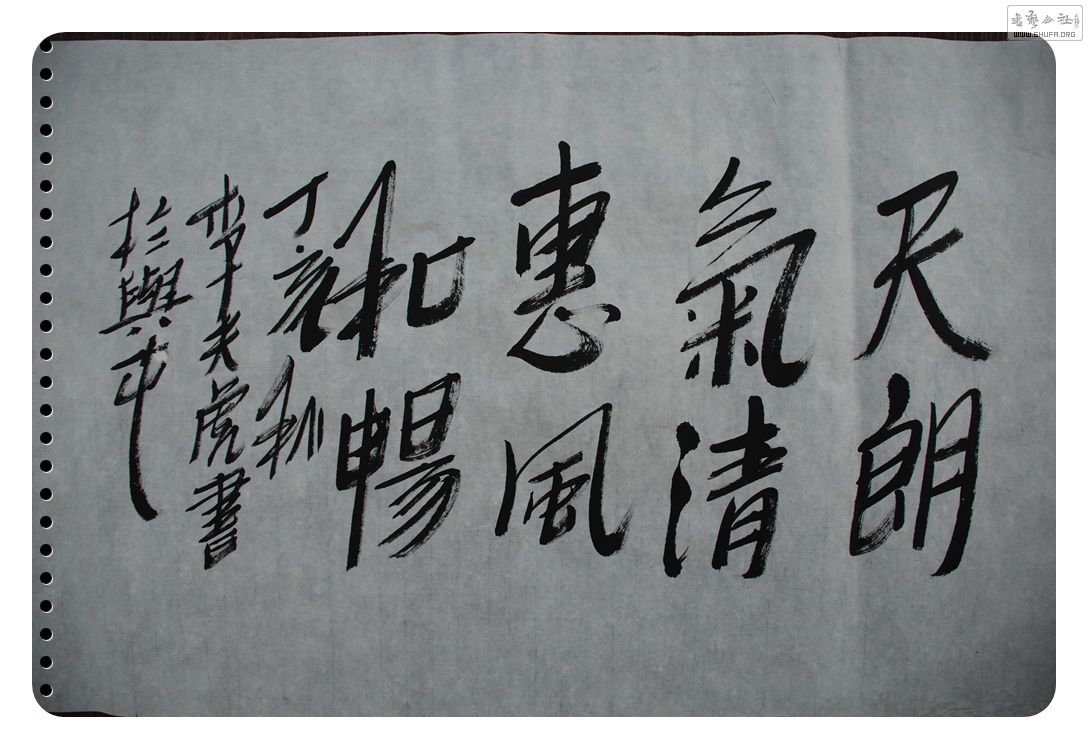 天朗
氣清
惠風
和暢
丁亥秋
李夫虎書
於與
書藝公社
WWW.SHUFA.ORG